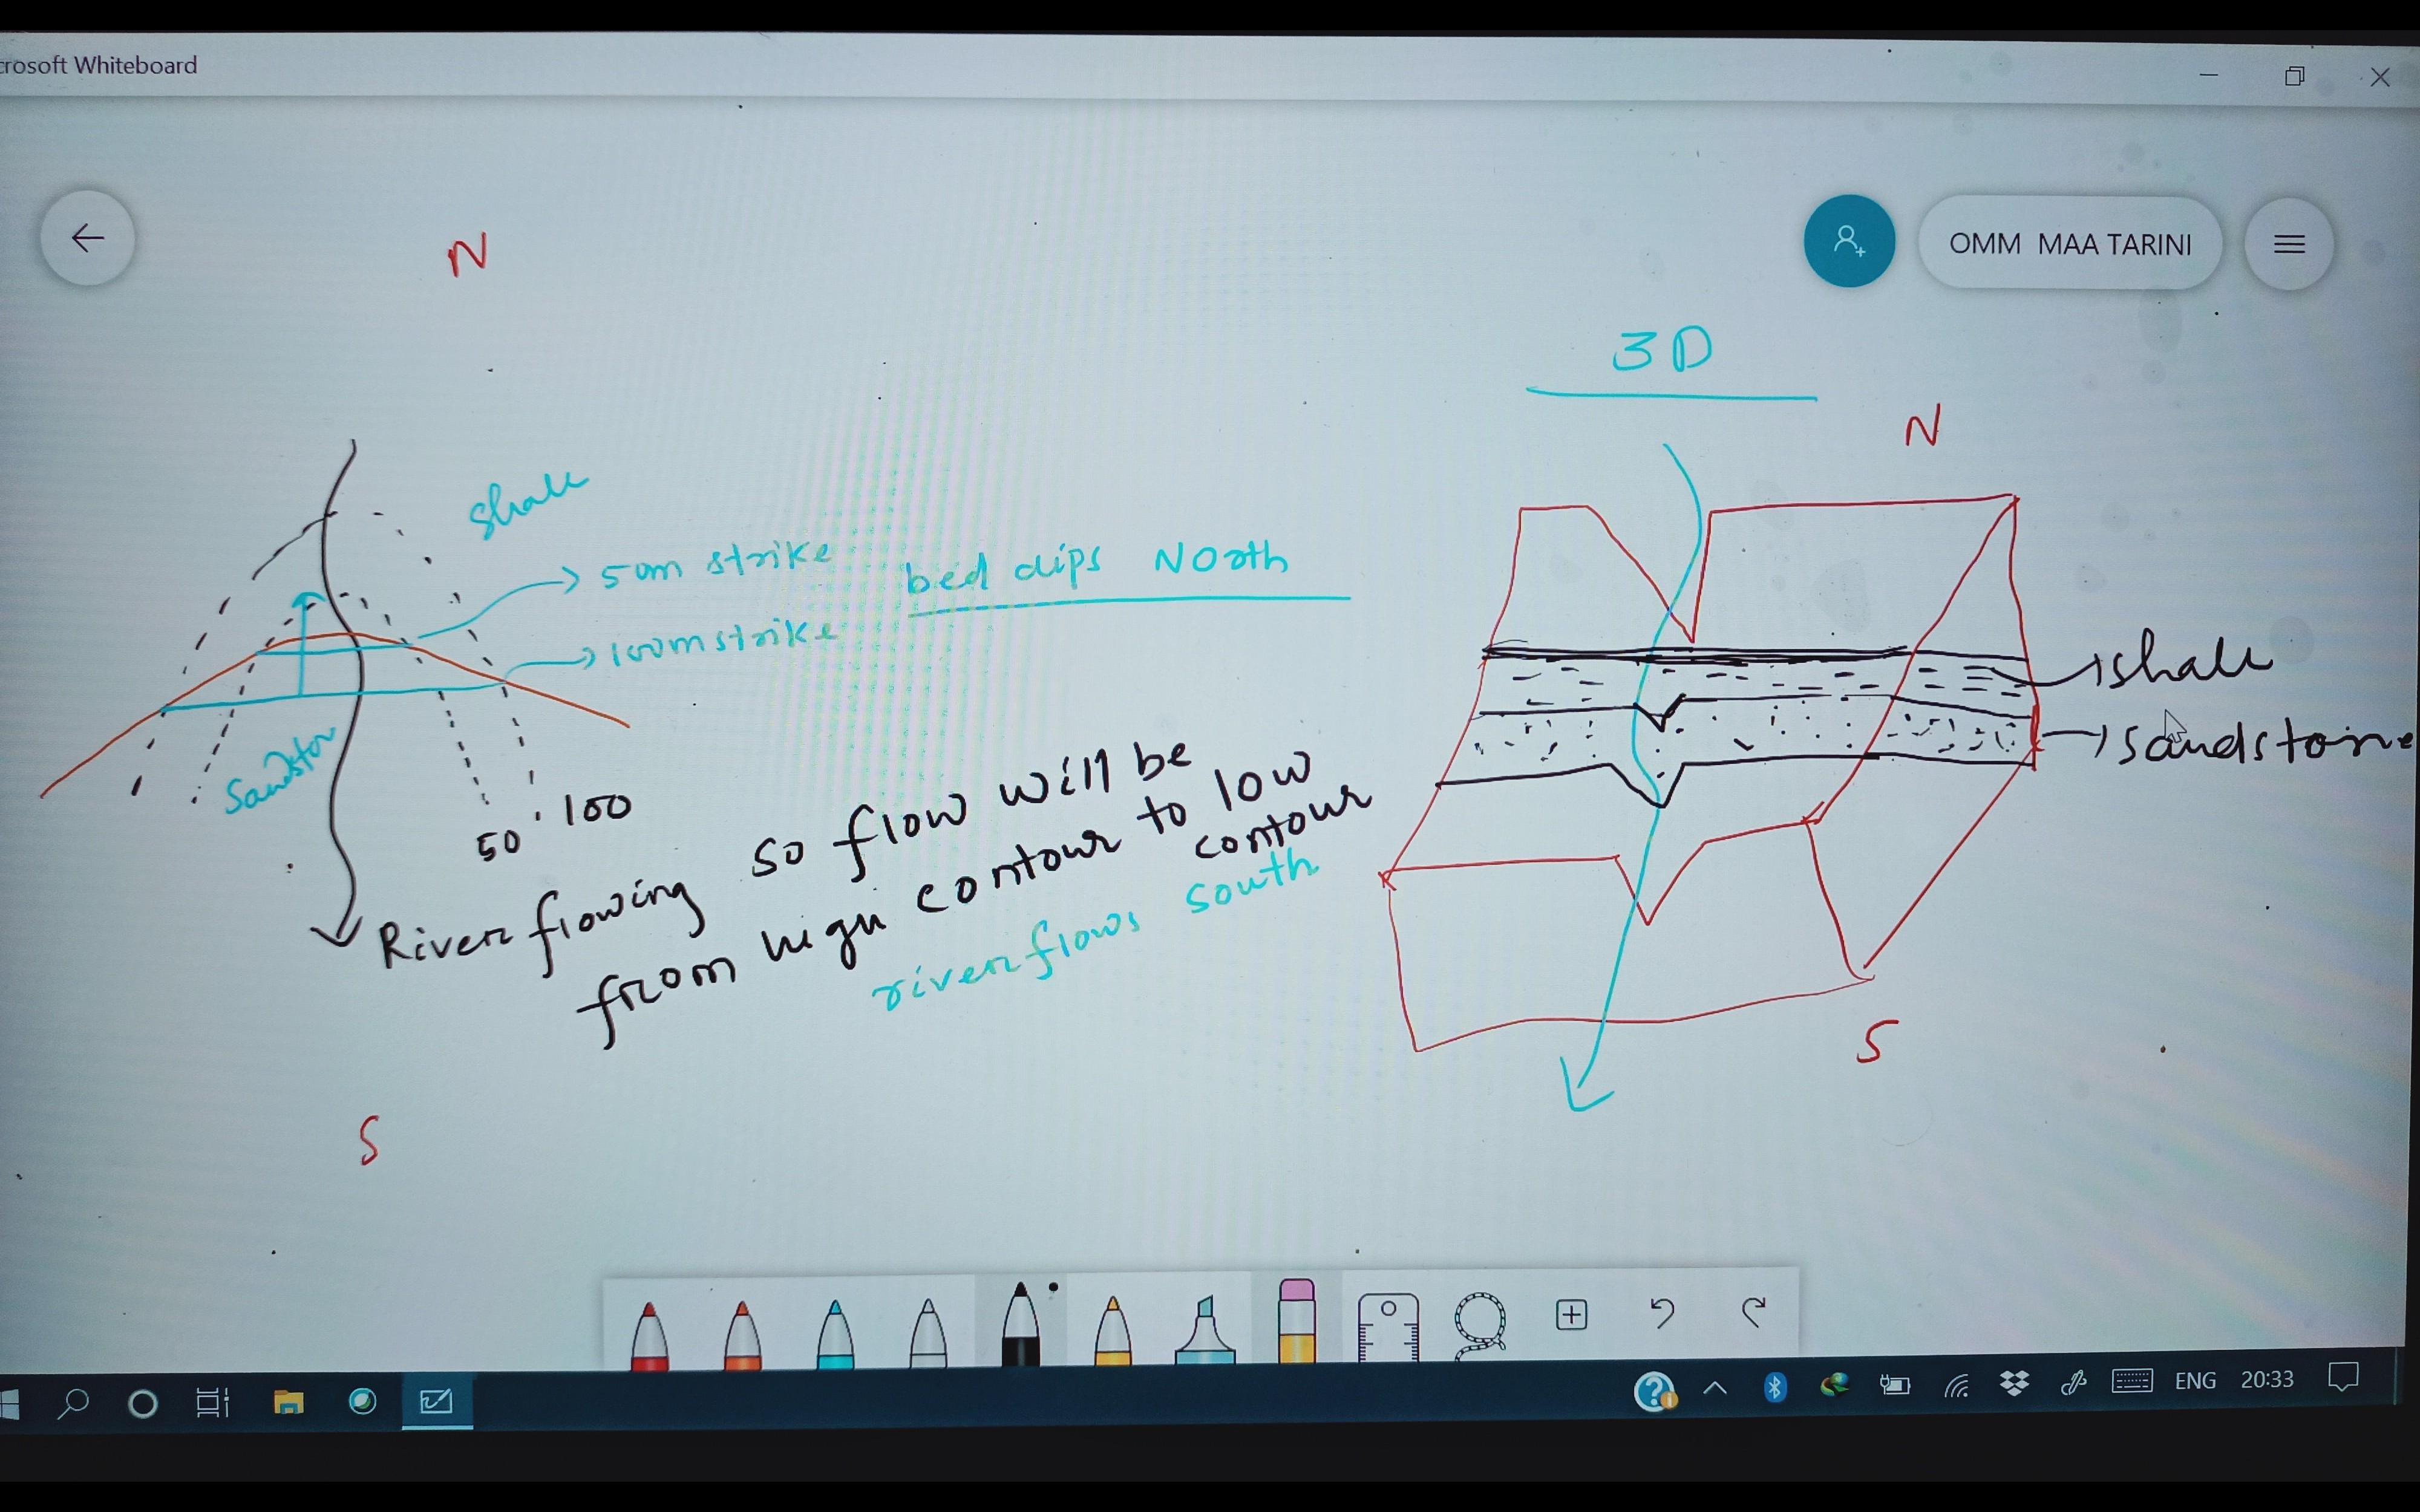 crosoft Whiteboard
OMM MAA TARINI
N
3D
N
shale
50m strike
bed dips North
100m strike
Sandston
shale
sandstone
50
100
River flowing so flow will be
from high contour to low
contour
river flows south
S
S
ENG
20:33